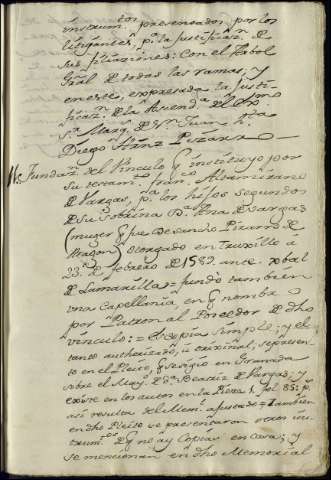 instrum.tos presentados por los
litigantes p.a la justificaz.n de
sus filiaciones: Con el Arbol
Gral de todas las ramas, y
en este, expresada la Justi-
ficaz.n de la Ascend.a del
s.r Marq.s de S.n Juan
Diego Aranz Pizarro
11. Fundaz.n del Vinculo q instituyo por
su testam.to fran.co Albarizano
de Vargas, p.a los hijos segundos
de su sobrina D.a Ana de Vargas
(muger q fue de Sancho Pizarro de
Aragon) otorgado en Truxillo á
23. de febrero de 1582. ante xptobal
de Lamanilla = fundo tambien
una Capellania en q nombra
por Patron al Posedor de dho
vinculo: = Es copia simple; y el
tanto authorizado, ú original, se presen-
to en el Pleito, q siguio en Granada
sobre el May.o de D.a Beatriz de Vargas; y
existe en los autos en la Pieza 1. fol 85: p.o
asi resulta del Mem.l ajustado = Tambien
en dho Pleito se presentaron otros ins-
trum.tos de q no ay Copias en casa; y
se mencionan en dho Memorial